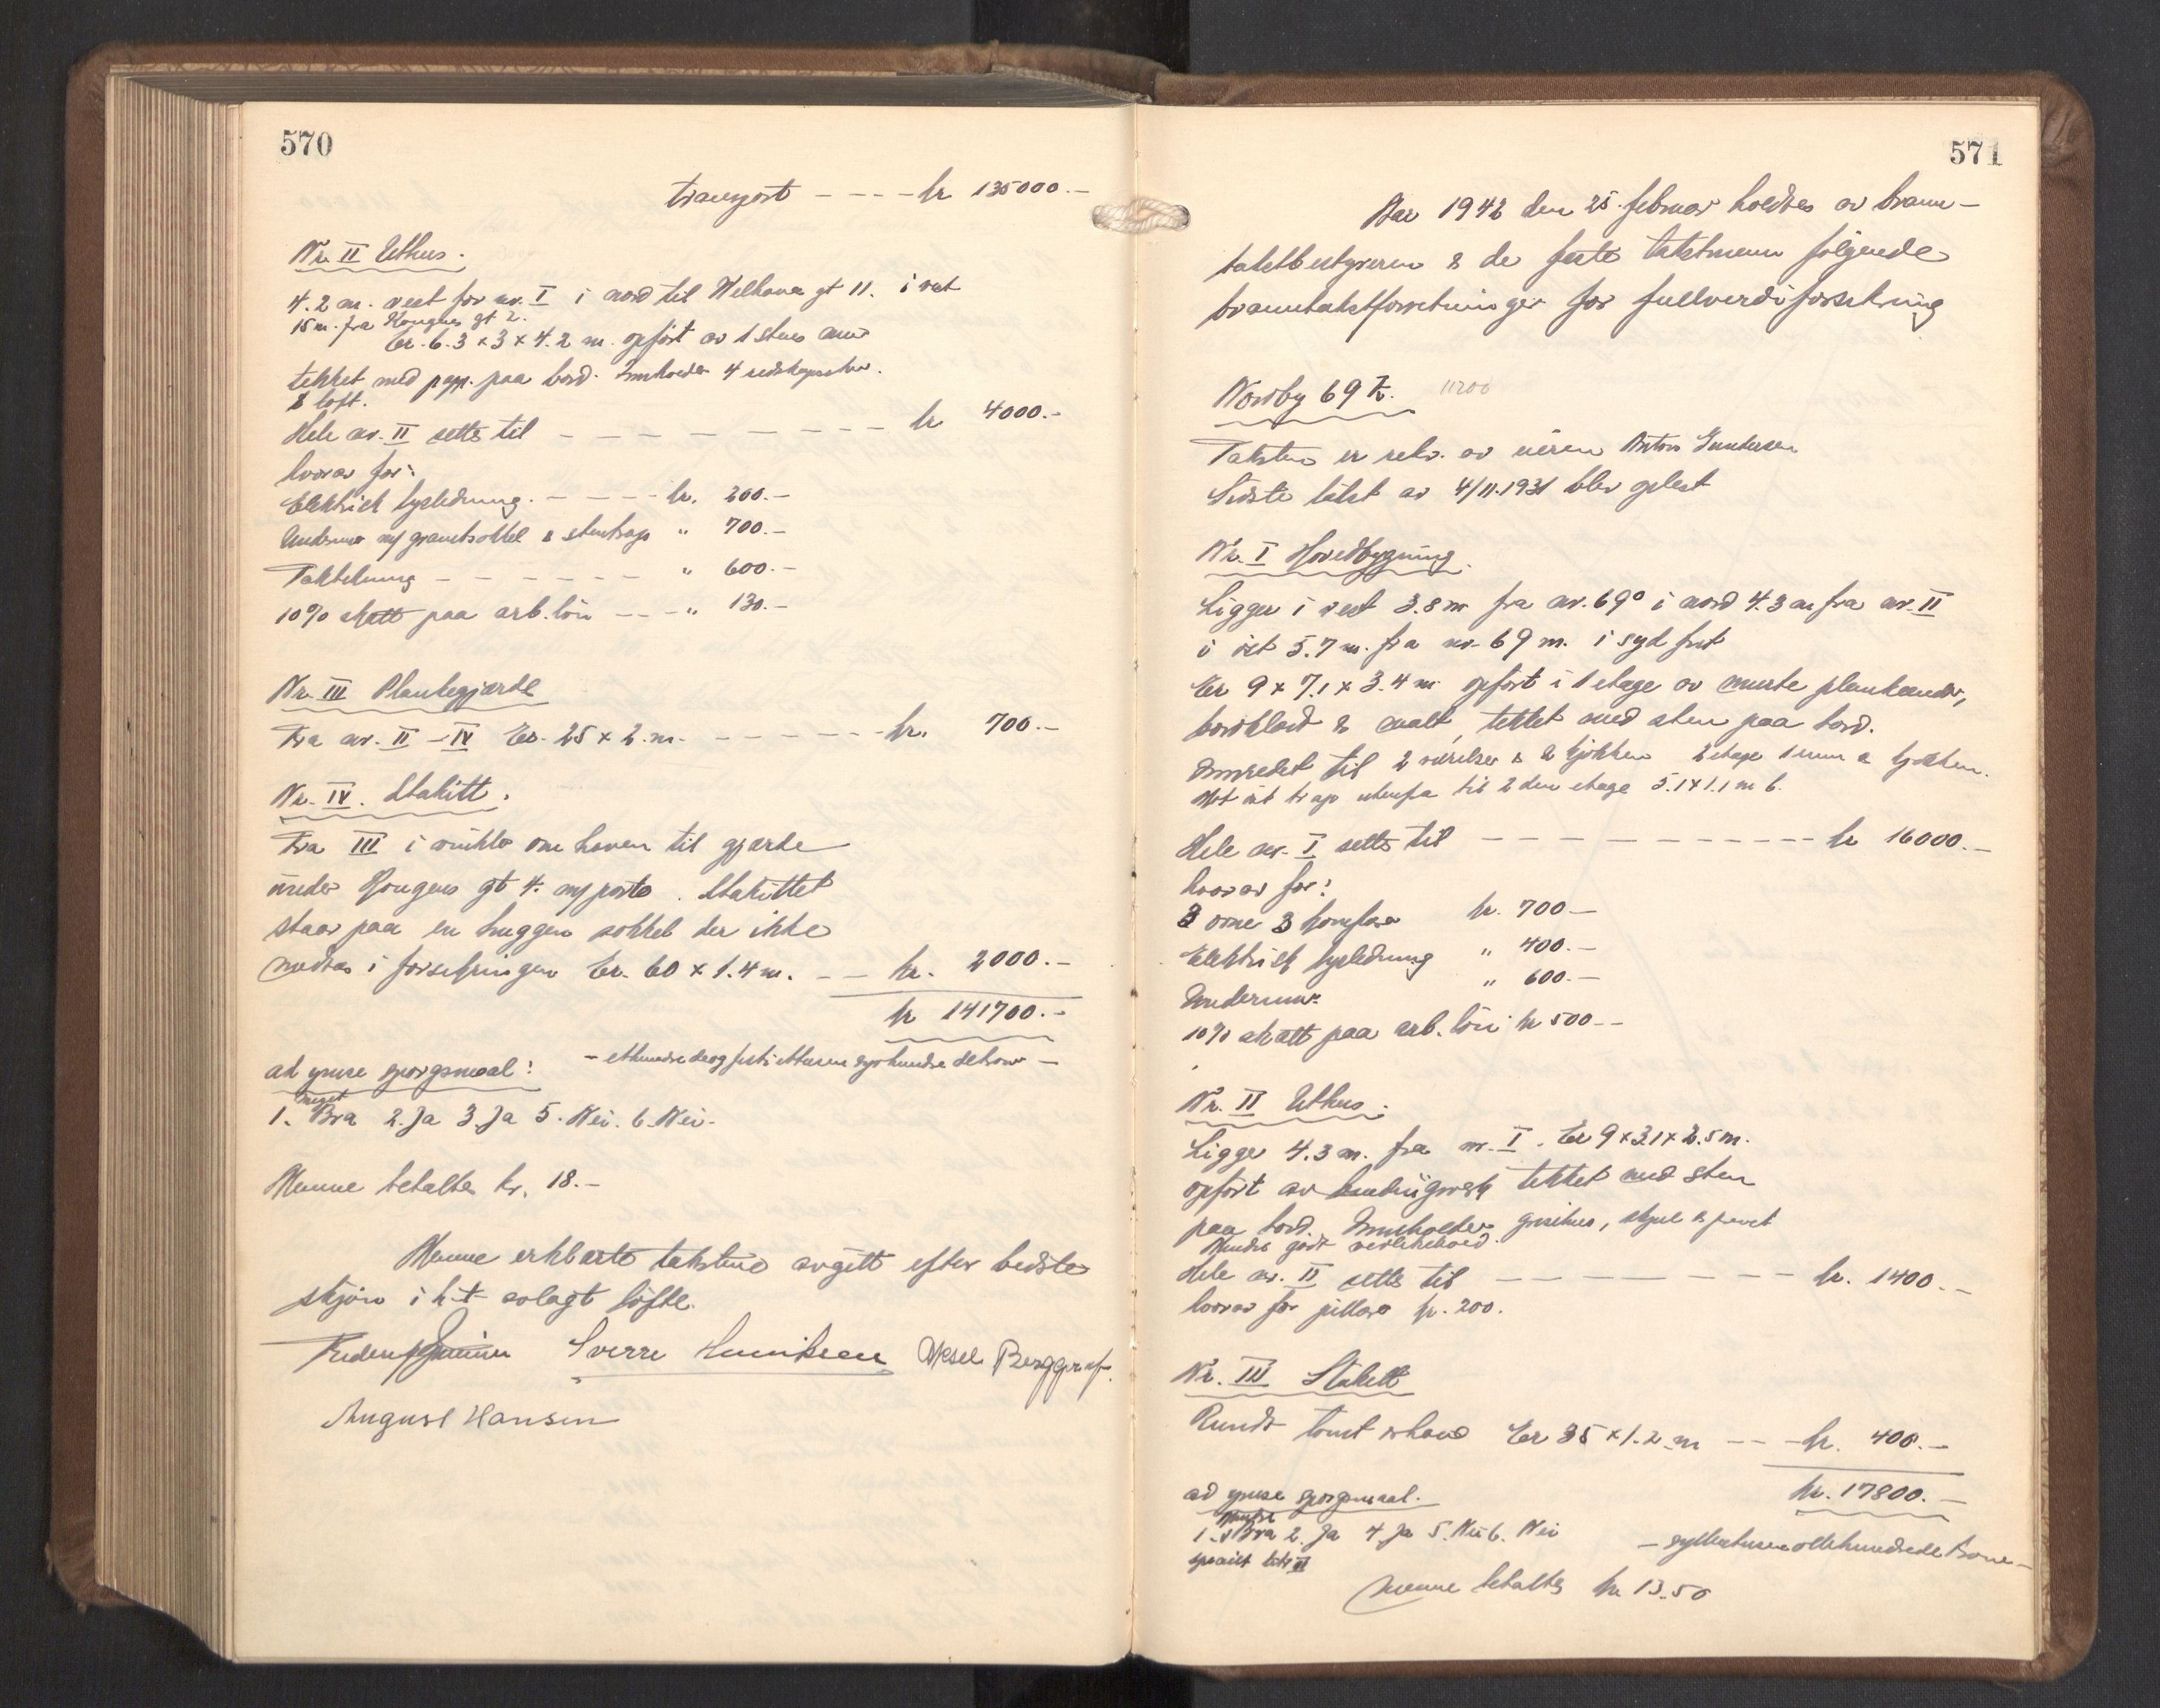 570
transport - - - - kr 135000.-
Nr. II Uthus.
4.2 m. vest for nr. I i nord til Welhavens gt 11. i vest
15 m. fra Kongens gt 2.
Er. 6.3 x 3 x 4.2 m. opført av 1 stens mur
tekket med papp paa bord. Inneholder 4 redskapsboder
& loft.
Hele nr. II settes til - - - - - - - - - kr 4000.-
hvorav for:
Elektrisk lysledning. - - - - kr. 200.-
Undermur m/ granitsokkel & stentrapp " 700.-
Taktekning - - - - - - " 600.-
10% skatt paa arb. løn - - - " 130.-
Nr. III Plankegjærde
Fra nr. II - IV Er. 25 x 2. m. - - - - - - kr. 700.-
Nr. IV. Stakitt.
Fra III i vinkler om haven til gjærde
under Kongens gt 4. m/ porte. Stakittet
staar paa en huggen sokkel der ikke
medtas i forsikringen Er. 60 x 1.4 m. - - kr. 2000.-
kr 141700.-
ad ymse spørgsmaal: - ethundredeogførtiettusensyvhundrede kroner -
meget
1. Bra 2. Ja 3. Ja 5. Nei. 6. Nei.
Menne betaltes kr. 18.-
Menne erklærte taksten avgitt efter bedste
skjøn i h.t. avlagt løfte.
Sverre Henriksen Aksel Berggraf.
August Hansen
571
Aar 1942 den 25. februar holdtes av brann-
takstbestyreren & de faste takstmenn følgende
branntakstforretninger for fullverdiforsikring
Nordby 69 k. 11200
Taksten er rekv. av eieren Anton Gundersen
Sidste takst av 4/11.1931 blev oplest
Nr. I Hovedbygning.
Ligger i vest 3.8 m fra nr. 69° i nord 4.3 m fra nr. II
i øst 5.7 m. fra nr. 69 m. i syd frit
Er 9 x 7.1 x 3.4 m opført i 1 etage av murte plankeender,
bordklædt & malt, tekket med sten paa bord.
Innredet til 2 værelser & 2 kjøkken 2 etage 1 rum & kjøkken.
Mot øst trap utenfra til 2 den etage 5.1 x 1.1 m b.
Hele nr. I settes til - - - - - - - - - - kr 16000.-
hvorav for:
3 ovne 3 komfyrer kr. 700-
Elektrisk lysledning " 400.-
Undermur " 600.-
10% skatt paa arb. løn kr 500-
Nr. II Uthus.
Ligger 4.3 m. fra nr. I. Er 9 x 3.1 x 2.5 m.
opført av bindingsverk tekket med sten
paa bord. Inneholder grisehus, skjul & privet
Mindre godt vedlikehold.
Hele nr. II settes til - - - - - - - kr. 1400.-
hvorav for pillarer kr. 200.
Nr. III Stakitt
Rundt tomt & have Er 35 x 1.2 m - - - kr. 400.-
kr. 17800.-
ad ymse spørgsmaal. - syttentusenottehundrede kroner -
Mindre
1. Bra 2. Ja 4 Ja 5. Nei 6. Nei
specielt litr II
Menne betaltes kr 13.50